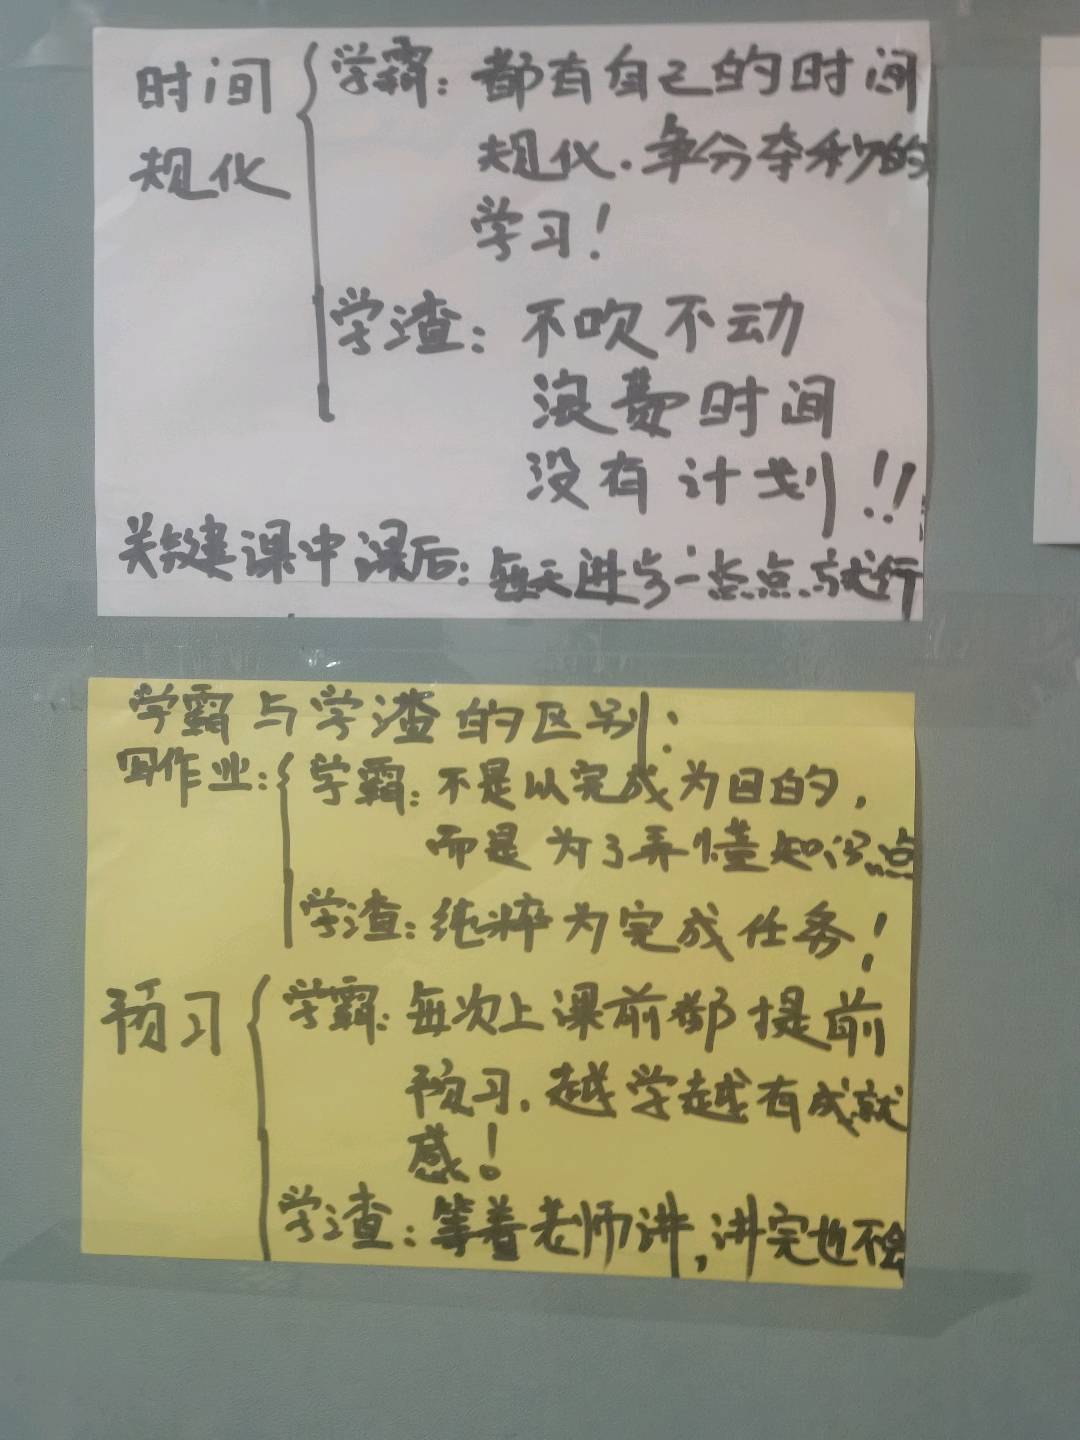 时间
规化
学霸：都有自己的时间
规化．争分夺秒的
学习！
学渣：不吹不动
浪费时间
没有计划！！
关键课中课后：每天进步一点点．就行
学霸与学渣的区别：
写作业：
学霸：不是以完成为目的，
而是为了弄懂知识点
学渣：纯粹为完成任务！
预习
学霸：每次上课前都提前
预习．越学越有成就
感！
学渣：等着老师讲，讲完也不会